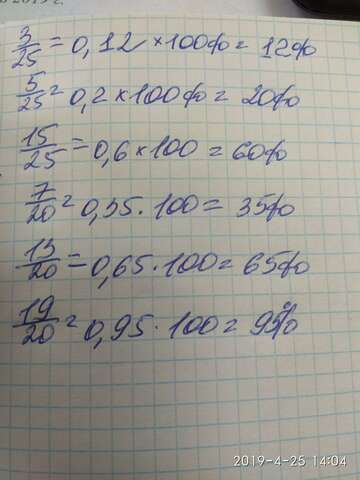 3/25 = 0,12 × 100% = 12%
5/25 = 0,2 × 100% = 20%
15/25 = 0,6 × 100 = 60%
7/20 = 0,35 · 100 = 35%
13/20 = 0,65 · 100 = 65%
19/20 = 0,95 · 100 = 95%
2019-4-25 14:04